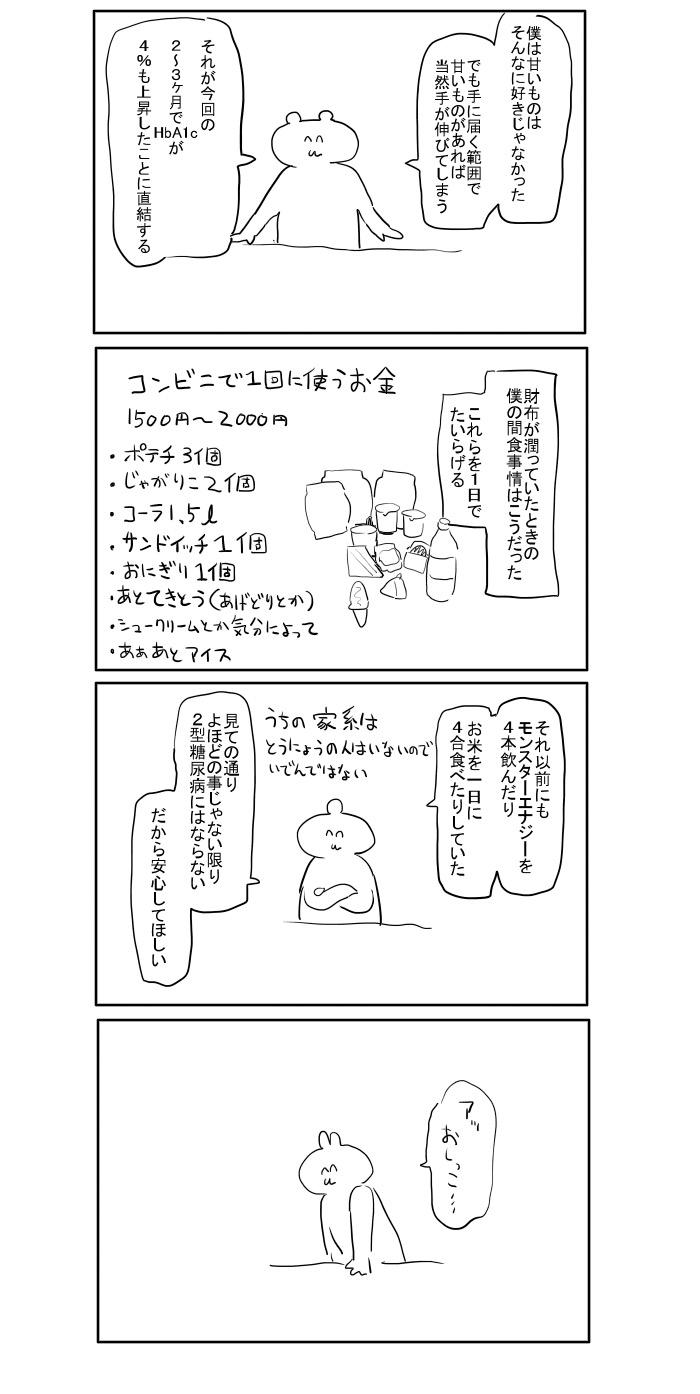 僕は甘いものは
そんなに好きじゃなかった
でも手に届く範囲で
甘いものがあれば
当然手が伸びてしまう
それが今回の
2〜3ヶ月で
HbA1cが
4%も上昇したことに直結する
財布が潤っていたときの
僕の間食事情はこうだった
これらを1日で
たいらげる
コンビニで1回に使うお金
1500円〜2000円
・ポテチ3個
・じゃがりこ2個
・コーラ1.5l
・サンドイッチ1個
・おにぎり1個
・あとてきとう(あげどりとか)
・シュークリームとか気分によって
・あぁあとアイス
それ以前にも
モンスターエナジーを
4本飲んだり
お米を一日に
4合食べたりしていた
うちの家系は
とうにょうの人はいないので
いでんではない
見ての通り
よほどの事じゃない限り
2型糖尿病にはならない
だから安心してほしい
アッ
おしっこ…